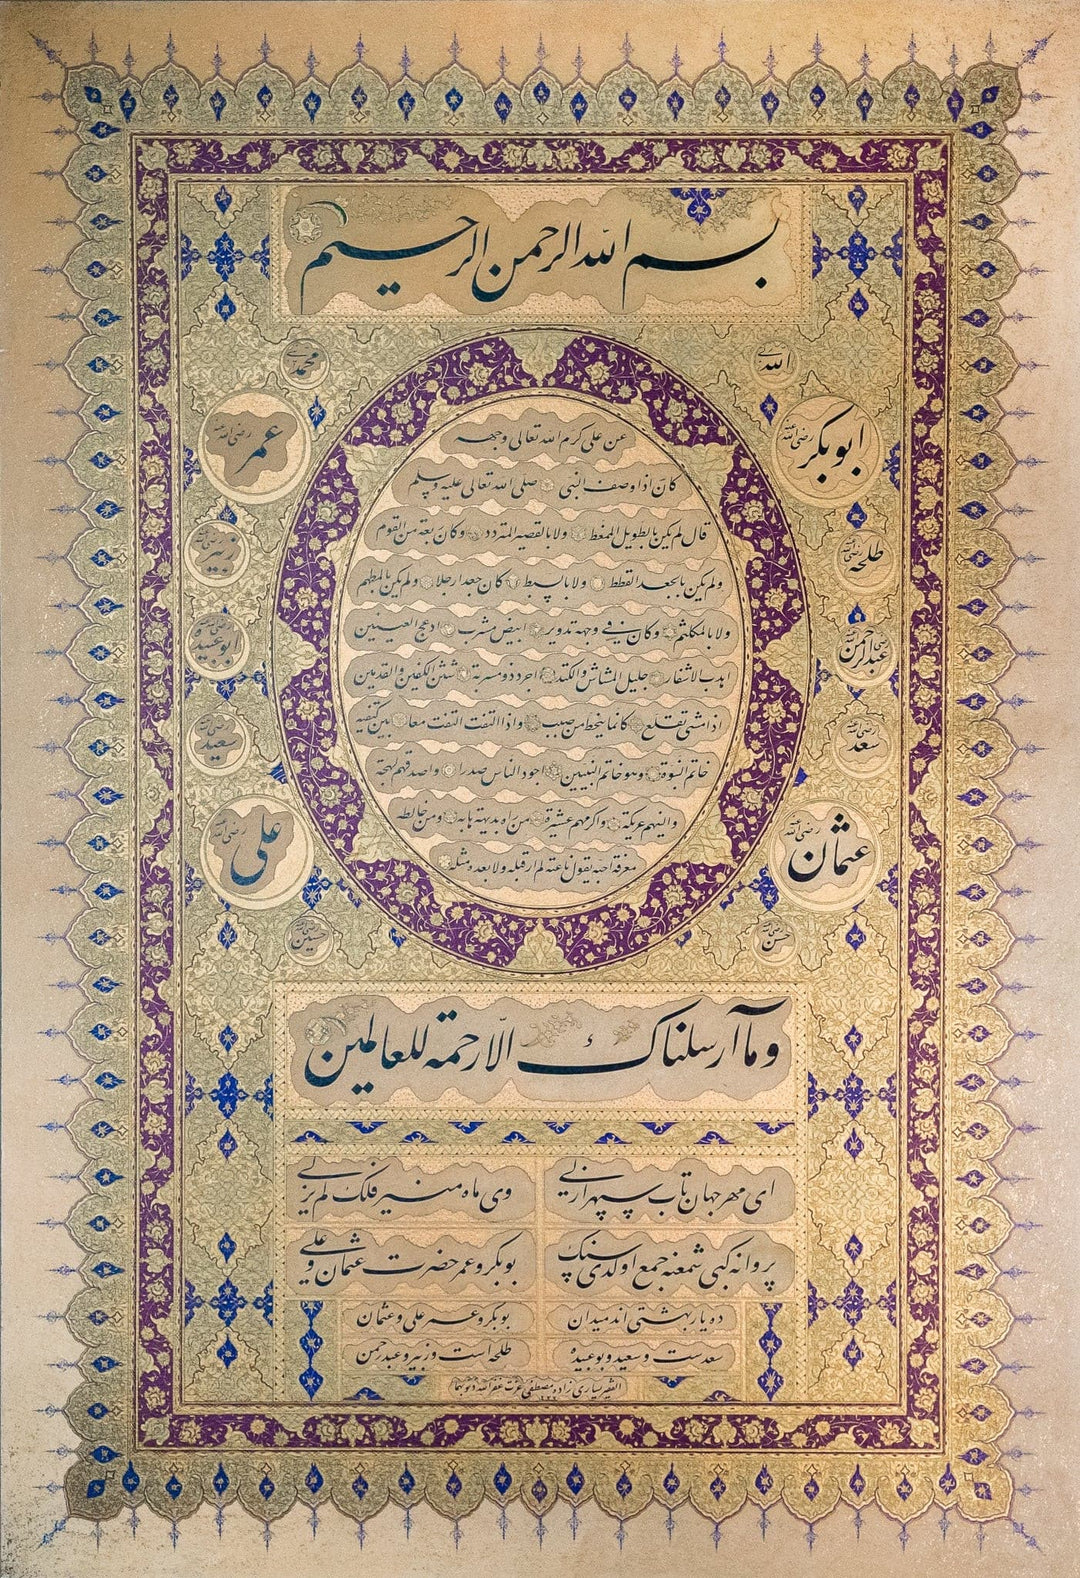 بسم الله الرحمن الرحيم
الله
محمد
ابوبكر رضى الله عنه
عمر رضى الله عنه
طلحه رضى الله عنه
زبير رضى الله عنه
عبدالرحمن رضى الله عنه
ابوعبيده رضى الله عنه
سعد رضى الله عنه
سعيد رضى الله عنه
عثمان رضى الله عنه
على رضى الله عنه
حسن رضى الله عنه
حسين رضى الله عنه
عن على كرم الله تعالى وجهه
كان اذا وصف النبى صلى الله تعالى عليه وسلم
قال لم يكن بالطويل الممغط ولا بالقصير المتردد وكان ربعة من القوم
ولم يكن بالجعد القطط ولا بالسبط كان جعدا رجلا ولم يكن بالمطهم
ولا بالمكلثم وكان فى وجهه تدوير ابيض مشرب ادعج العينين
اهدب الاشفار جليل المشاش والكتد اجرد ذو مسربة شثن الكفين والقدمين
اذا مشى تقلع كانما ينحط من صبب واذا التفت التفت معا بين كتفيه
خاتم النبوة وهو خاتم النبيين اجود الناس صدرا واصدقهم لهجة
والينهم عريكة واكرمهم عشيرة من راه بديهة هابه ومن خالطه
معرفة احبه يقول ناعته لم ار قبله ولا بعده مثله
وما آرسلناك الا رحمة للعالمين
اى مهر جهان تاب سپهر ازلى وى ماه منير فلك لم يزلى
پروانه كبى شمعنه جمع اولدى سنك بوبكر و عمر حضرت عثمان و على
ده يار بهشتى اند ميدان بوبكر و عمر على و عثمان
سعدست و سعيد و بوعبيده طلحه است و زبير و عبدرحمن
الفقير يسارى زاده مصطفى عزت غفر الله ذنوبهما